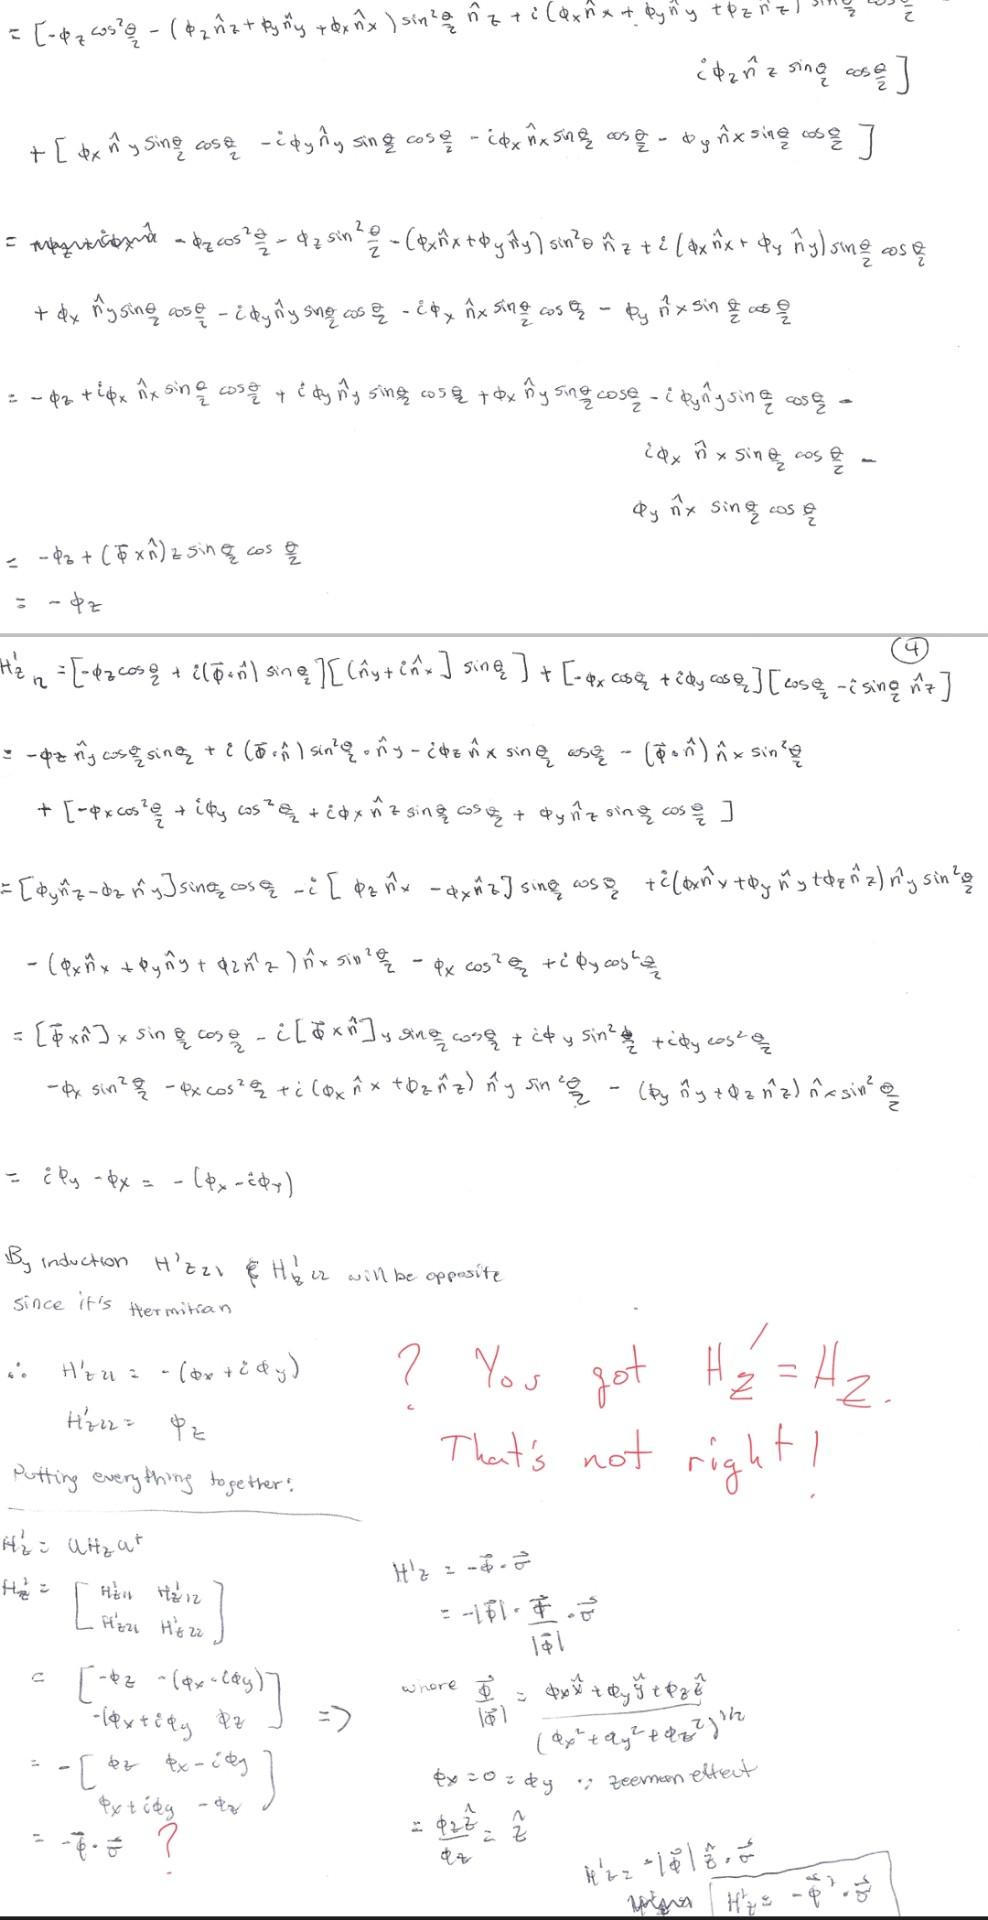 = [-ϕz cos²θ/2 - (ϕz n̂z + ϕy n̂y + ϕx n̂x) sin²θ/2 n̂z + i(ϕx n̂x + ϕy n̂y + ϕz n̂z) sinθ/2 cosθ/2
iϕz n̂z sinθ/2 cosθ/2]
+ [ϕx n̂y sinθ/2 cosθ/2 - iϕy n̂y sinθ/2 cosθ/2 - iϕx n̂x sinθ/2 cosθ/2 - ϕy n̂x sinθ/2 cosθ/2]
= -ϕz cos²θ/2 - ϕz sin²θ/2 - (ϕx n̂x + ϕy n̂y) sin²θ n̂z + i(ϕx n̂x + ϕy n̂y) sinθ/2 cosθ/2
+ ϕx n̂y sinθ/2 cosθ/2 - iϕy n̂y sinθ/2 cosθ/2 - iϕx n̂x sinθ/2 cosθ/2 - ϕy n̂x sinθ/2 cosθ/2
= -ϕz + iϕx n̂x sinθ/2 cosθ/2 + iϕy n̂y sinθ/2 cosθ/2 + ϕx n̂y sinθ/2 cosθ/2 - iϕy n̂y sinθ/2 cosθ/2 -
iϕx n̂x sinθ/2 cosθ/2 -
ϕy n̂x sinθ/2 cosθ/2
= -ϕz + (Φ⃗ × n̂)z sinθ/2 cosθ/2
= -ϕz
④
H'z12 = [-ϕz cosθ/2 + i(Φ⃗·n̂) sinθ/2][(n̂y + i n̂x] sinθ/2] + [-ϕx cosθ/2 + iϕy cosθ/2][cosθ/2 - i sinθ/2 n̂z]
= -ϕz n̂y cosθ/2 sinθ/2 + i(Φ⃗·n̂) sin²θ/2 · n̂y - iϕz n̂x sinθ/2 cosθ/2 - (Φ⃗·n̂) n̂x sin²θ/2
+ [-ϕx cos²θ/2 + iϕy cos²θ/2 + iϕx n̂z sinθ/2 cosθ/2 + ϕy n̂z sinθ/2 cosθ/2]
= [ϕy n̂z - ϕz n̂y] sinθ/2 cosθ/2 - i[ϕz n̂x - ϕx n̂z] sinθ/2 cosθ/2 + i(ϕx n̂x + ϕy n̂y + ϕz n̂z) n̂y sin²θ/2
- (ϕx n̂x + ϕy n̂y + ϕz n̂z) n̂x sin²θ/2 - ϕx cos²θ/2 + iϕy cos²θ/2
= [Φ⃗ × n̂]x sinθ/2 cosθ/2 - i[Φ⃗ × n̂]y sinθ/2 cosθ/2 + iϕy sin²θ/2 + iϕy cos²θ/2
-ϕx sin²θ/2 - ϕx cos²θ/2 + i(ϕx n̂x + ϕz n̂z) n̂y sin²θ/2 - (ϕy n̂y + ϕz n̂z) n̂x sin²θ/2
= iϕy - ϕx = -(ϕx - iϕy)
By induction H'z21 & H'z22 will be opposite
since it's Hermitian
∴ H'z21 = -(ϕx + iϕy)
H'z22 = ϕz
? You got Hz' = Hz.
That's not right!
Putting everything together:
H'z = UHzU†
H'z = [H'z11 H'z12
H'z21 H'z22]
= [-ϕz -(ϕx - iϕy)
-(ϕx + iϕy ϕz] =>
= -[ϕz ϕx - iϕy
ϕx + iϕy -ϕz]
= -Φ⃗·σ⃗ ?
H'z = -Φ⃗·σ⃗
= -|Φ⃗| · Φ⃗/|Φ⃗| · σ⃗
where Φ⃗/|Φ⃗| = (ϕx x̂ + ϕy ŷ + ϕz ẑ)/(ϕx² + ϕy² + ϕz²)^1/2
ϕx = 0 = ϕy ∵ zeeman effect
= ϕz ẑ/ϕz = ẑ
H'z = -|Φ⃗| ẑ·σ⃗
H'z = -Φ⃗'·σ⃗